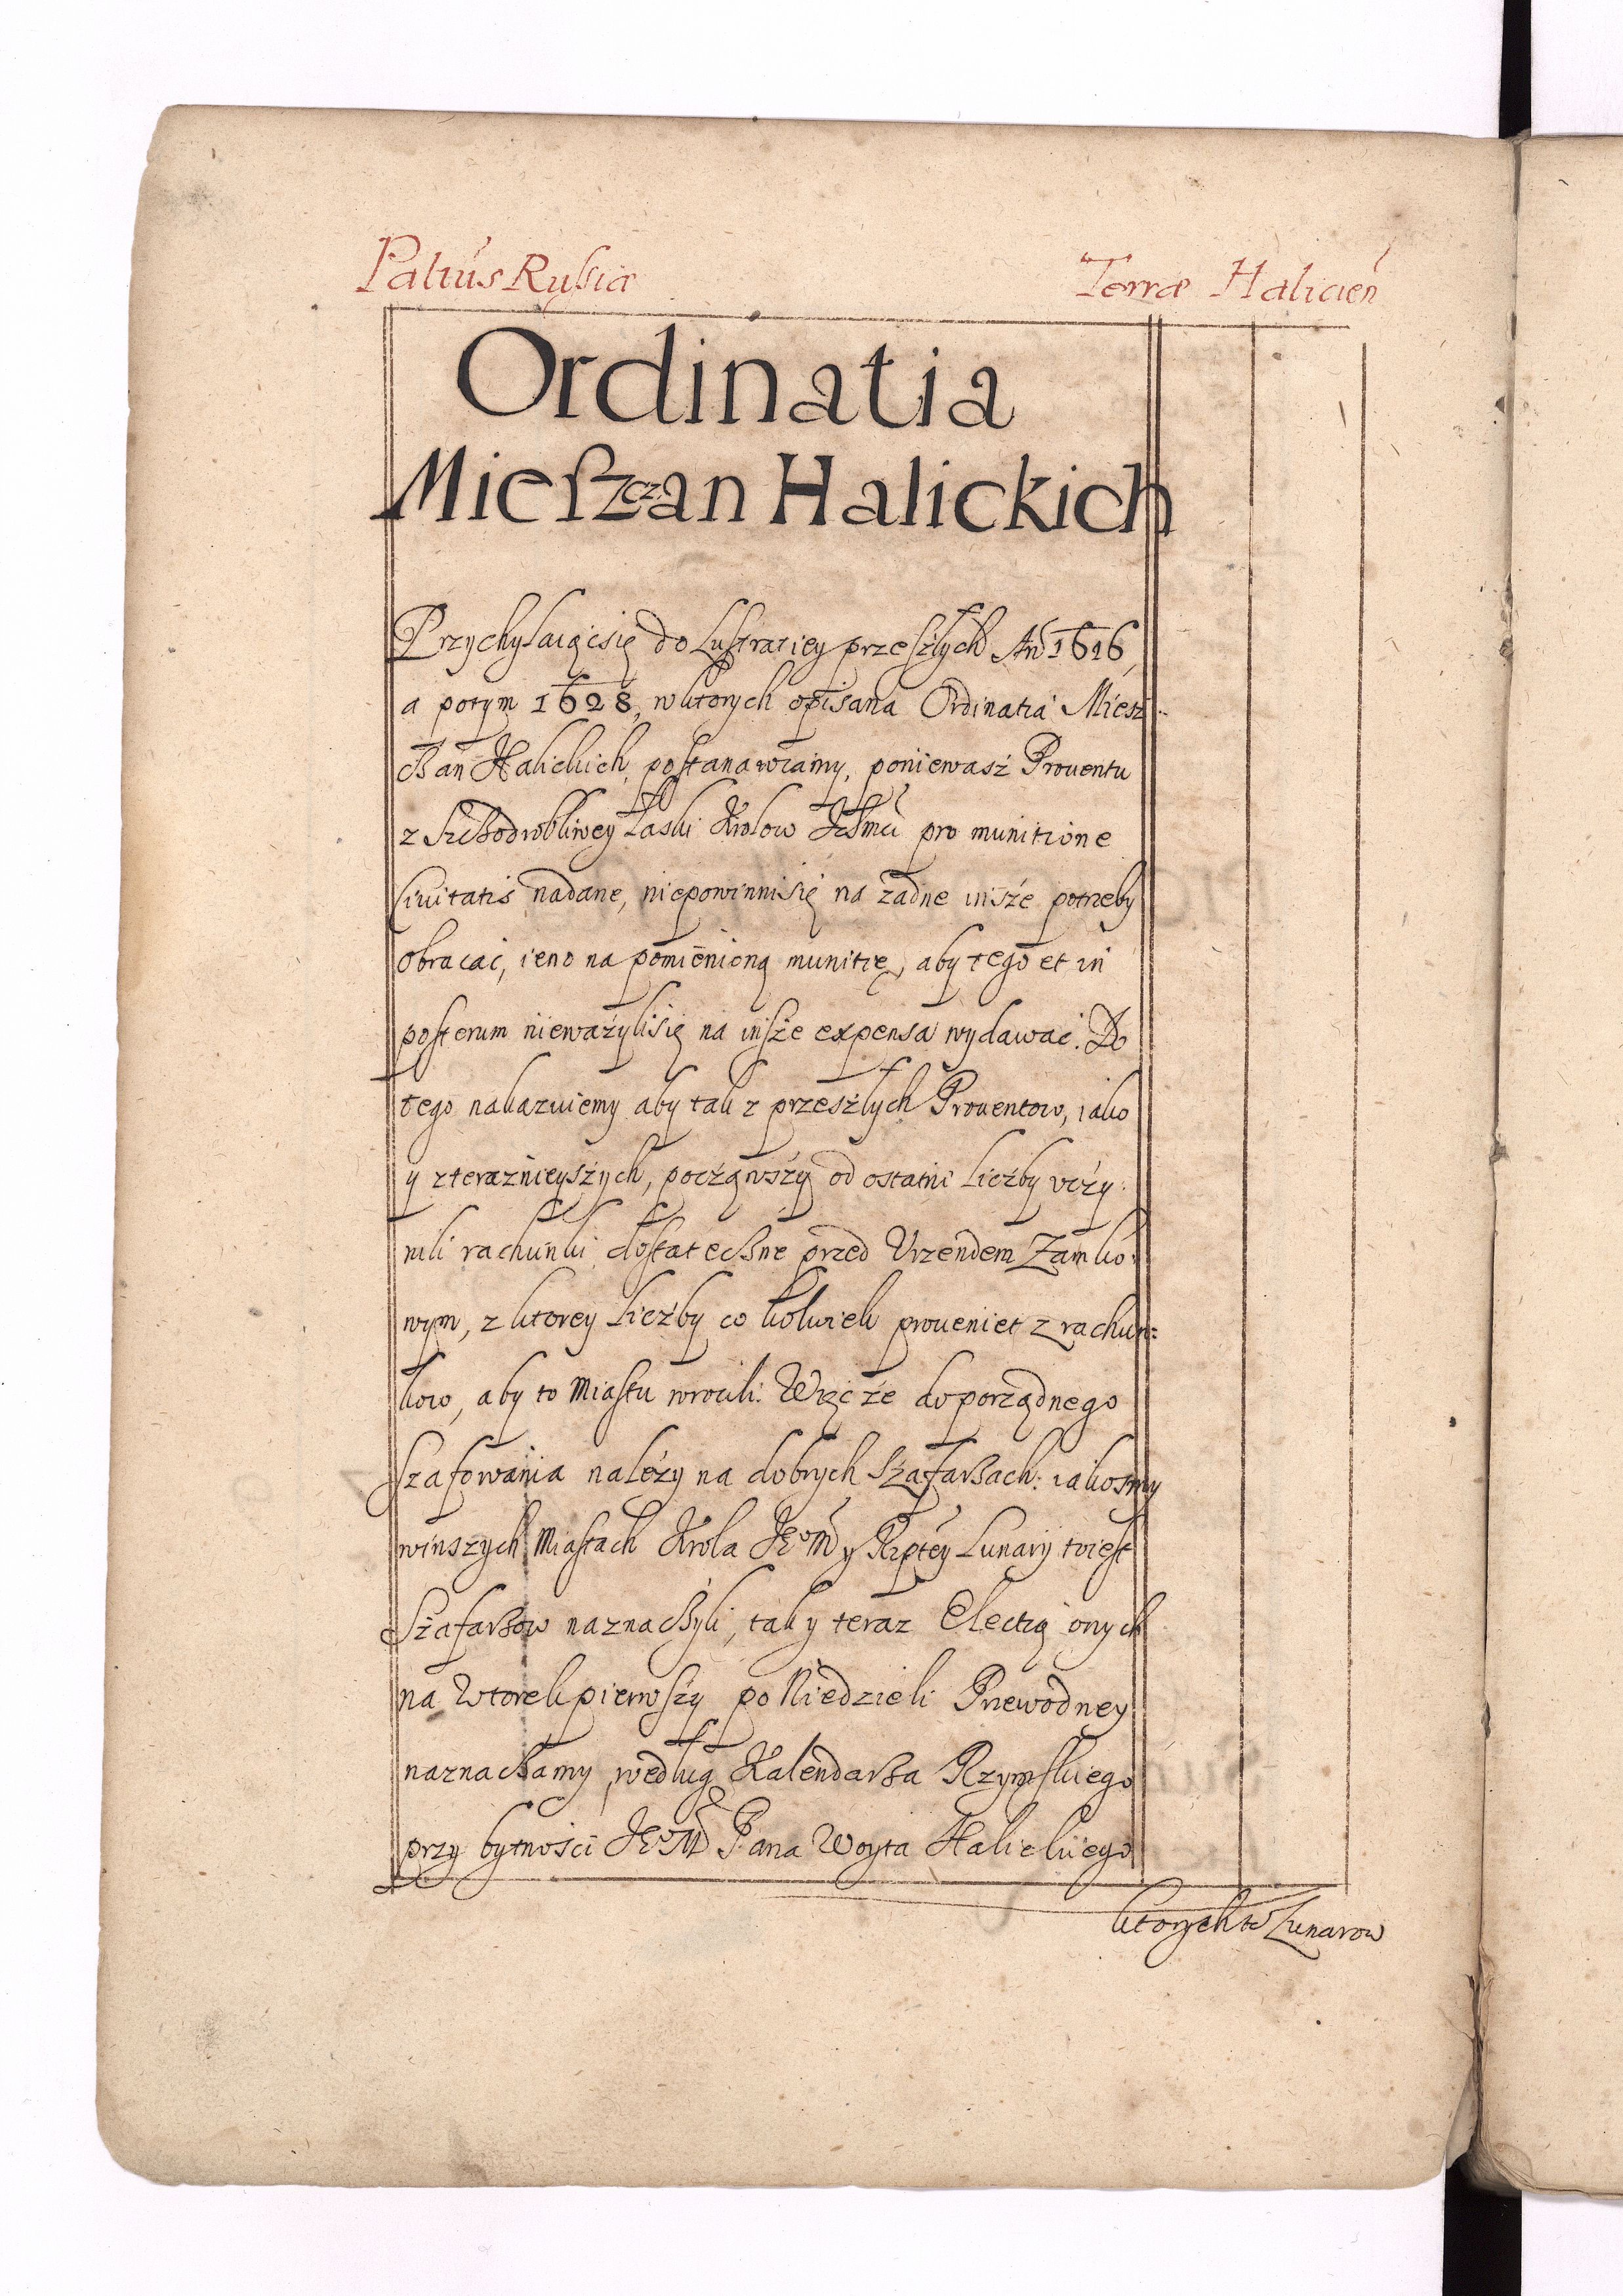 Palt́us Russiæ
Terræ Halicień
Ordinatia
Mieszczan Halickich
Przychylaiącsię do Lustratiey przeszłych Añ 1616,
a potym 1628, wktorych opisana Ordinatia Miesz-
czan Halickich, postanawiamy, poniewasz Prouentu
z Szczodrobliwey Łaski Krolow Ichmći pro munitione
Ciuitatis nadane, niepowinnisię na żadne insze potrzeby
obracać, ieno na pomienioną munitię, aby tego et in
posterum nieważylisię na insze expensa wydawać. Do
tego nakazuiemy aby tak z przeszłych Prouentow, iako
y zteraznieyszych, począwszy od ostatni Liczby vczy-
nili rachunki dostateczne przed Vrzendem Zamko-
wym, z ktorey Liczby co kolwiek proueniet z rachun=
kow, aby to Miastu wrocili. Więc że doporządnego
szafowania należy na dobrych szafarzach: iakosmy
winszych Miastach Krola Je°M y Rzptey Lunary toiest
Szafarzow naznaczyli, tak y teraz Electią onych
na Wtorek pierwszy po Niedzieli Przewodney
naznaczamy, według Kalendarza Rzymskiego
przy bytności Je°M Pana Woyta Halickiego
ktorych to Lunarow